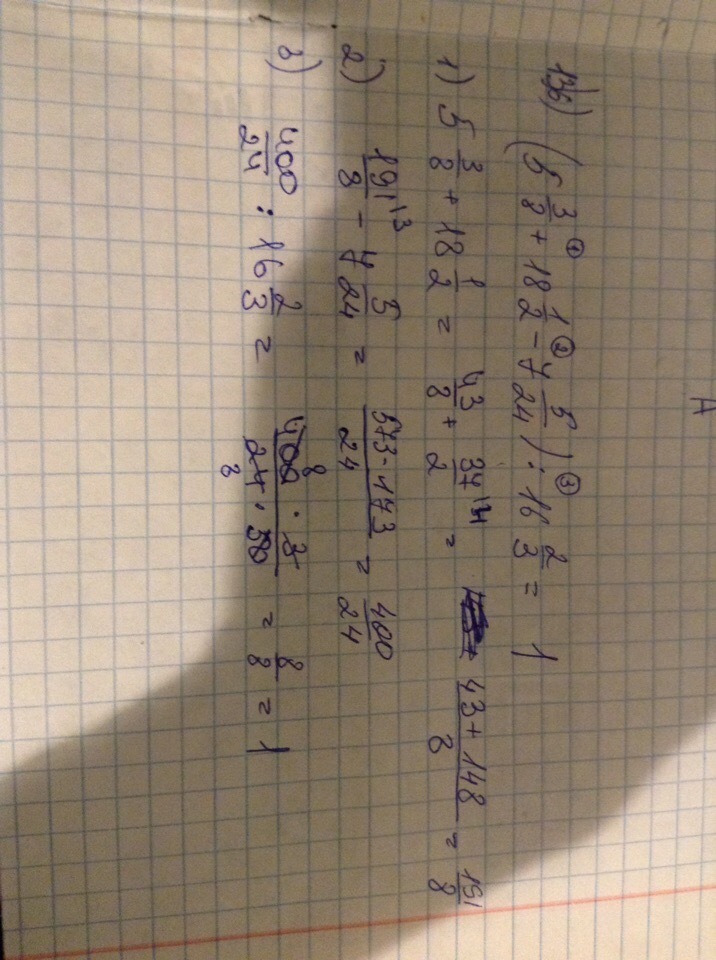 A
136) (5 3/8 +① 18 1/2 -② 7 5/24) :③ 16 2/3 = 1
1) 5 3/8 + 18 1/2 = 43/8 + 37/2 \4 = (43 + 148)/8 = 191/8
2) 191/8 \3 - 7 5/24 = (573 - 173)/24 = 400/24
3) 400/24 : 16 2/3 = (400 8 · 3)/(24 8 · 50) = 8/8 = 1